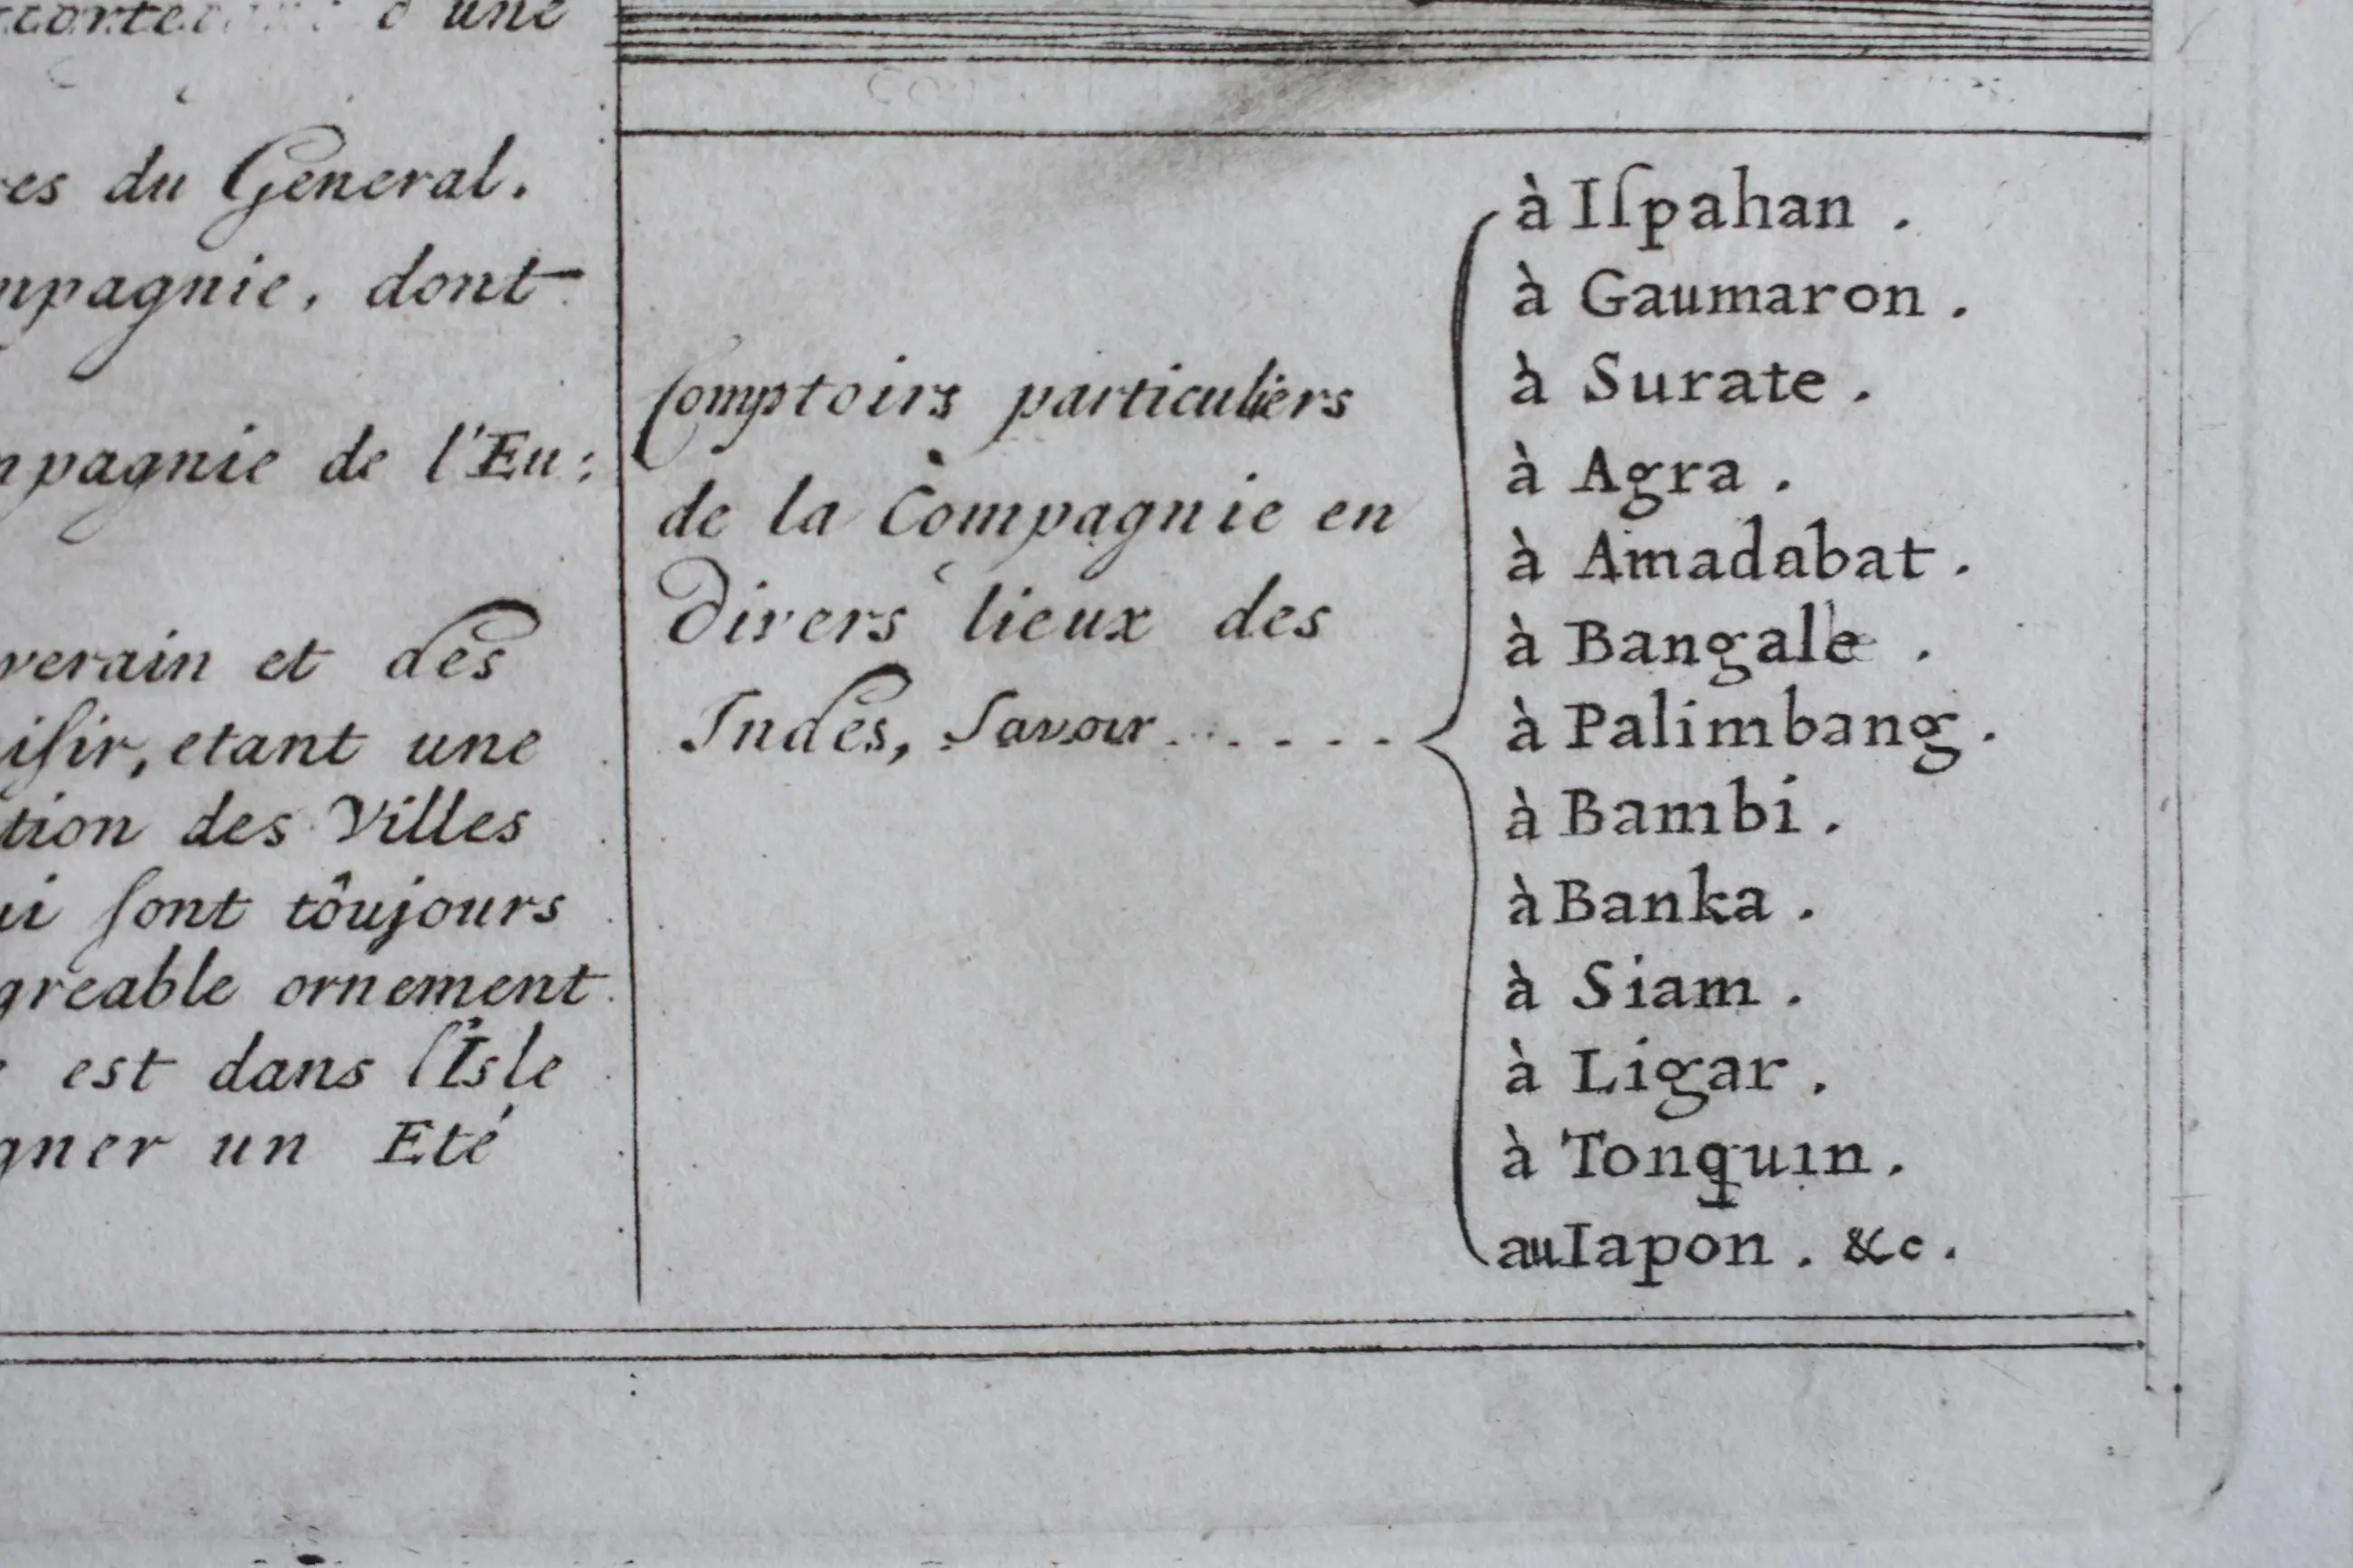 d'une
es du General.
mpagnie, dont
mpagnie de l'Eu:
verain et des
isir, etant une
tion des Villes
ui sont toûjours
greable ornement
est dans l'Isle
gner un Eté
Comptoirs particuliers
de la Compagnie en
divers lieux des
Indes, Savoir......
à Iſpahan.
à Gaumaron.
à Surate.
à Agra.
à Amadabat.
à Bangale.
à Palimbang.
à Bambi.
à Banka.
à Siam.
à Ligar.
à Tonquin.
au Iapon. &c.